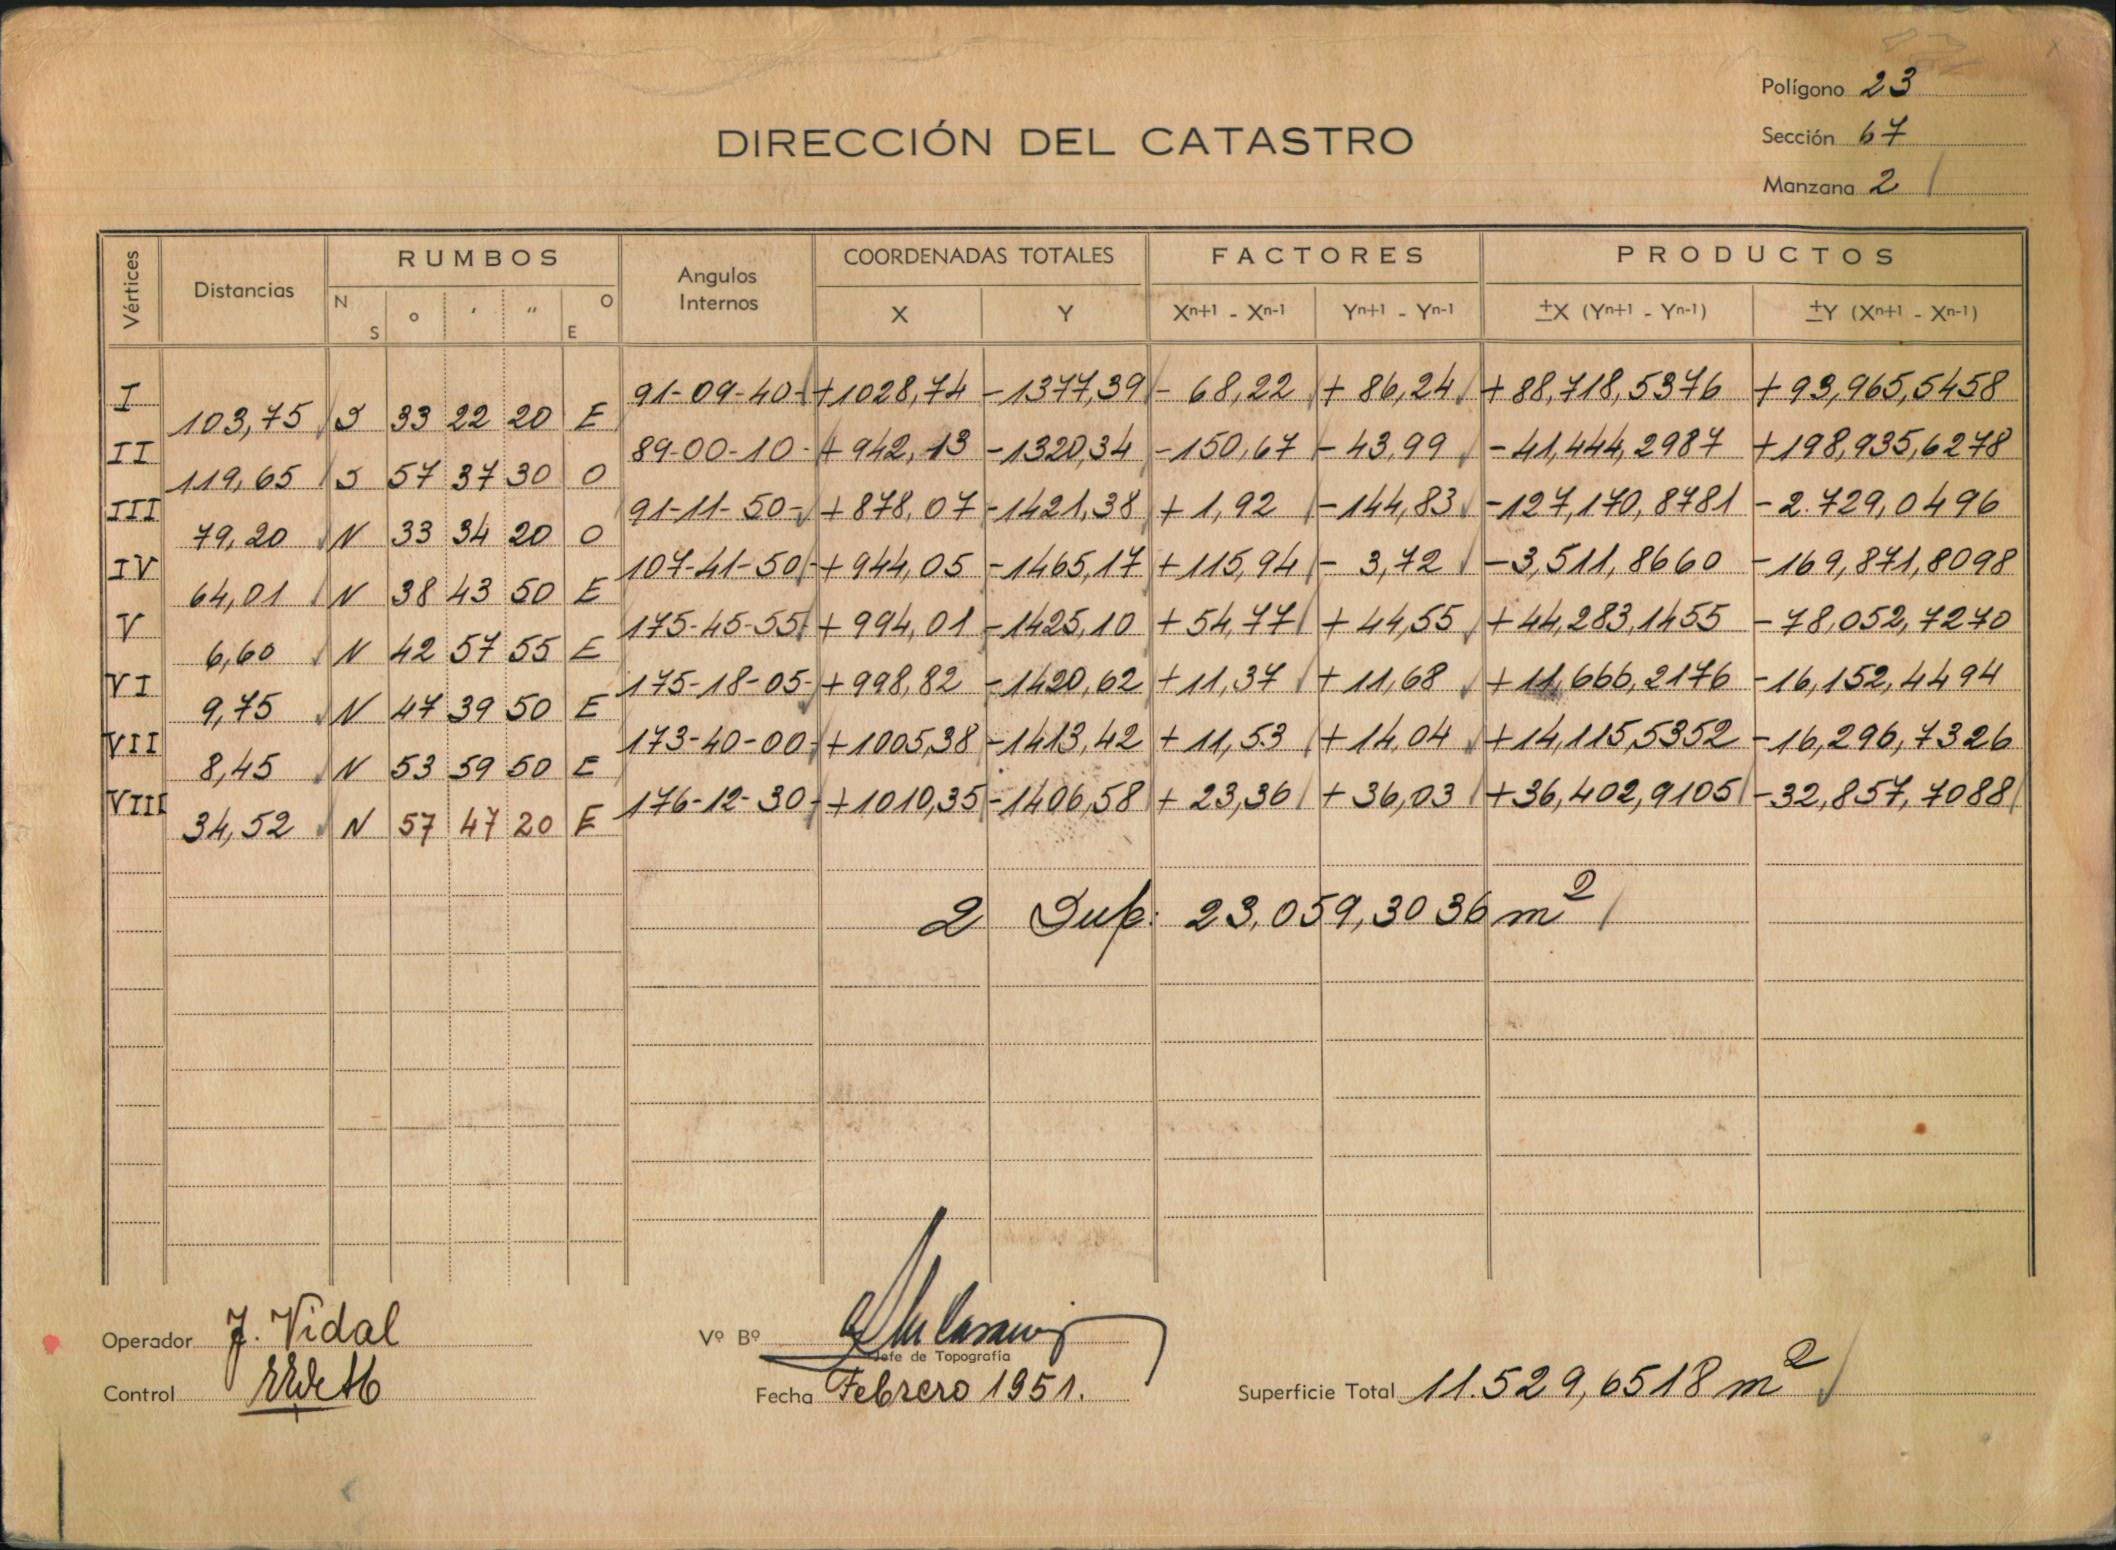 Polígono 23
DIRECCIÓN DEL CATASTRO
Sección 67
Manzana 2
Vértices Distancias RUMBOS Angulos Internos COORDENADAS TOTALES FACTORES PRODUCTOS
N S o ' " O E X Y Xn+1 - Xn-1 Yn+1 - Yn-1 ±X (Yn+1 - Yn-1) ±Y (Xn+1 - Xn-1)
I 91-09-40- +1028,74 -1377,39 - 68,22 + 86,24 +88,718,5376 + 93,965,5458
103,75 S 33 22 20 E
II 89-00-10- + 942,13 -1320,34 -150,67 - 43,99 -41,444,2987 +198,935,6278
119,65 S 57 37 30 O
III 91-11-50- + 878,07 -1421,38 + 1,92 -144,83 -127,170,8781 - 2.729,0496
79,20 N 33 34 20 O
IV 107-41-50- + 944,05 -1465,17 +115,94 - 3,72 -3,511,8660 -169,871,8098
64,01 N 38 43 50 E
V 175-45-55 + 994,01 -1425,10 + 54,77 + 44,55 +44,283,1455 - 78,052,7270
6,60 N 42 57 55 E
VI 175-18-05- +998,82 -1420,62 +11,37 + 11,68 +11,666,2176 -16,152,4494
9,75 N 47 39 50 E
VII 173-40-00- +1005,38 -1413,42 + 11,53 +14,04 +14,115,5352 -16,296,7326
8,45 N 53 59 50 E
VIII 176-12-30- +1010,35 -1406,58 + 23,36 + 36,03 +36,402,9105 -32,857,7088
34,52 N 57 47 20 E
2 Sup: 23,059,3036 m²
Operador J. Vidal Vº Bº
Jefe de Topografía
Control Fecha Febrero 1951. Superficie Total 11.529,6518 m²